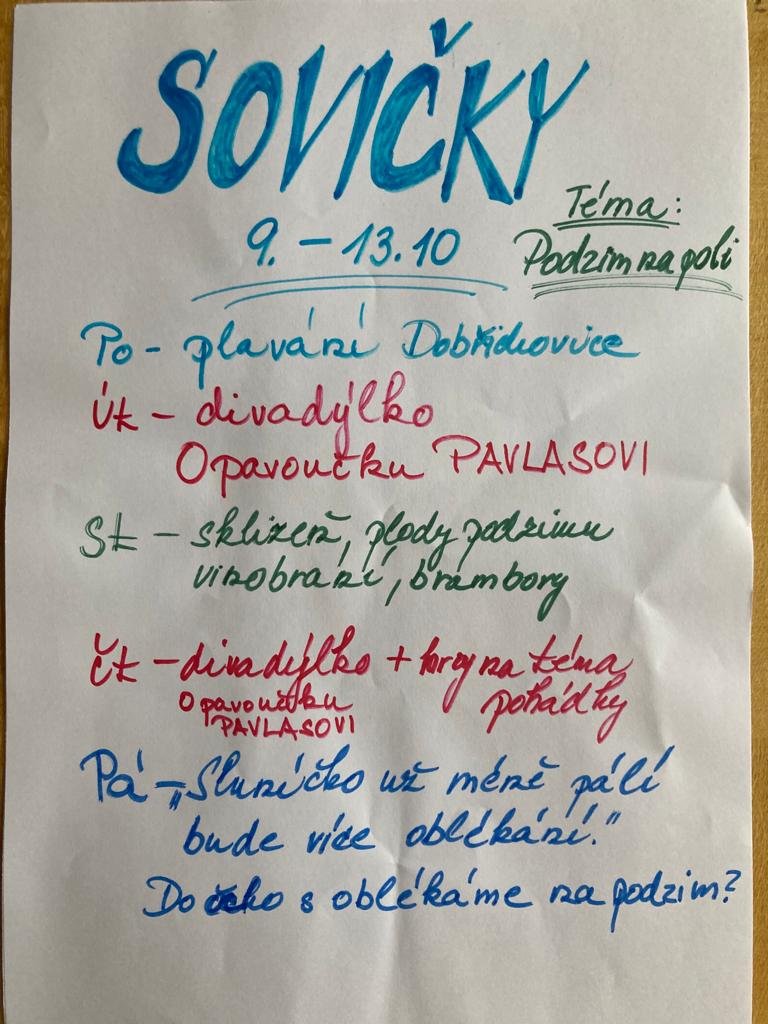 SOVIČKY
9. - 13.10
Téma:
Podzim na poli
Po - plavání Dobřichovice
Út - divadýlko
O pavoučku PAVLASOVI
St - sklizeň, plody podzimu
vinobraní, brambory
Čt - divadýlko + hry na téma
O pavoučku pohádky
PAVLASOVI
Pá - „Sluníčko už méně pálí
bude více oblékání."
Do čeho s oblékáme na podzim?